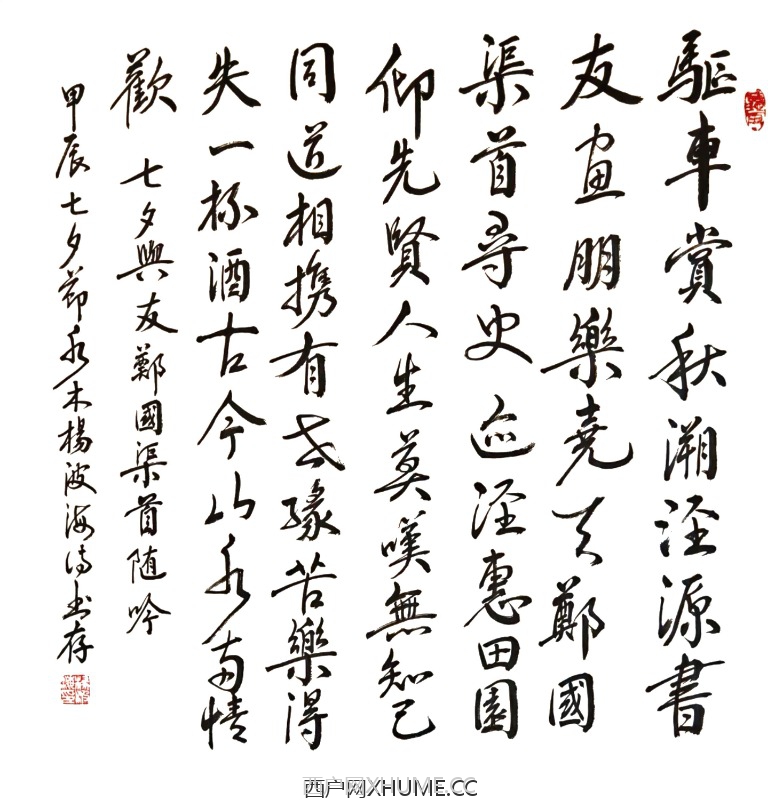 驅車賞秋溯涇源書
友畫朋樂堯天鄭國
渠首尋史迹涇惠田園
仰先賢人生莫嘆無知己
同道相携有世緣苦樂得
失一杯酒古今山水情
歡 七夕與友鄭國渠首随吟
甲辰七夕節水木楊波海诗书存
西户网XHUME.CC